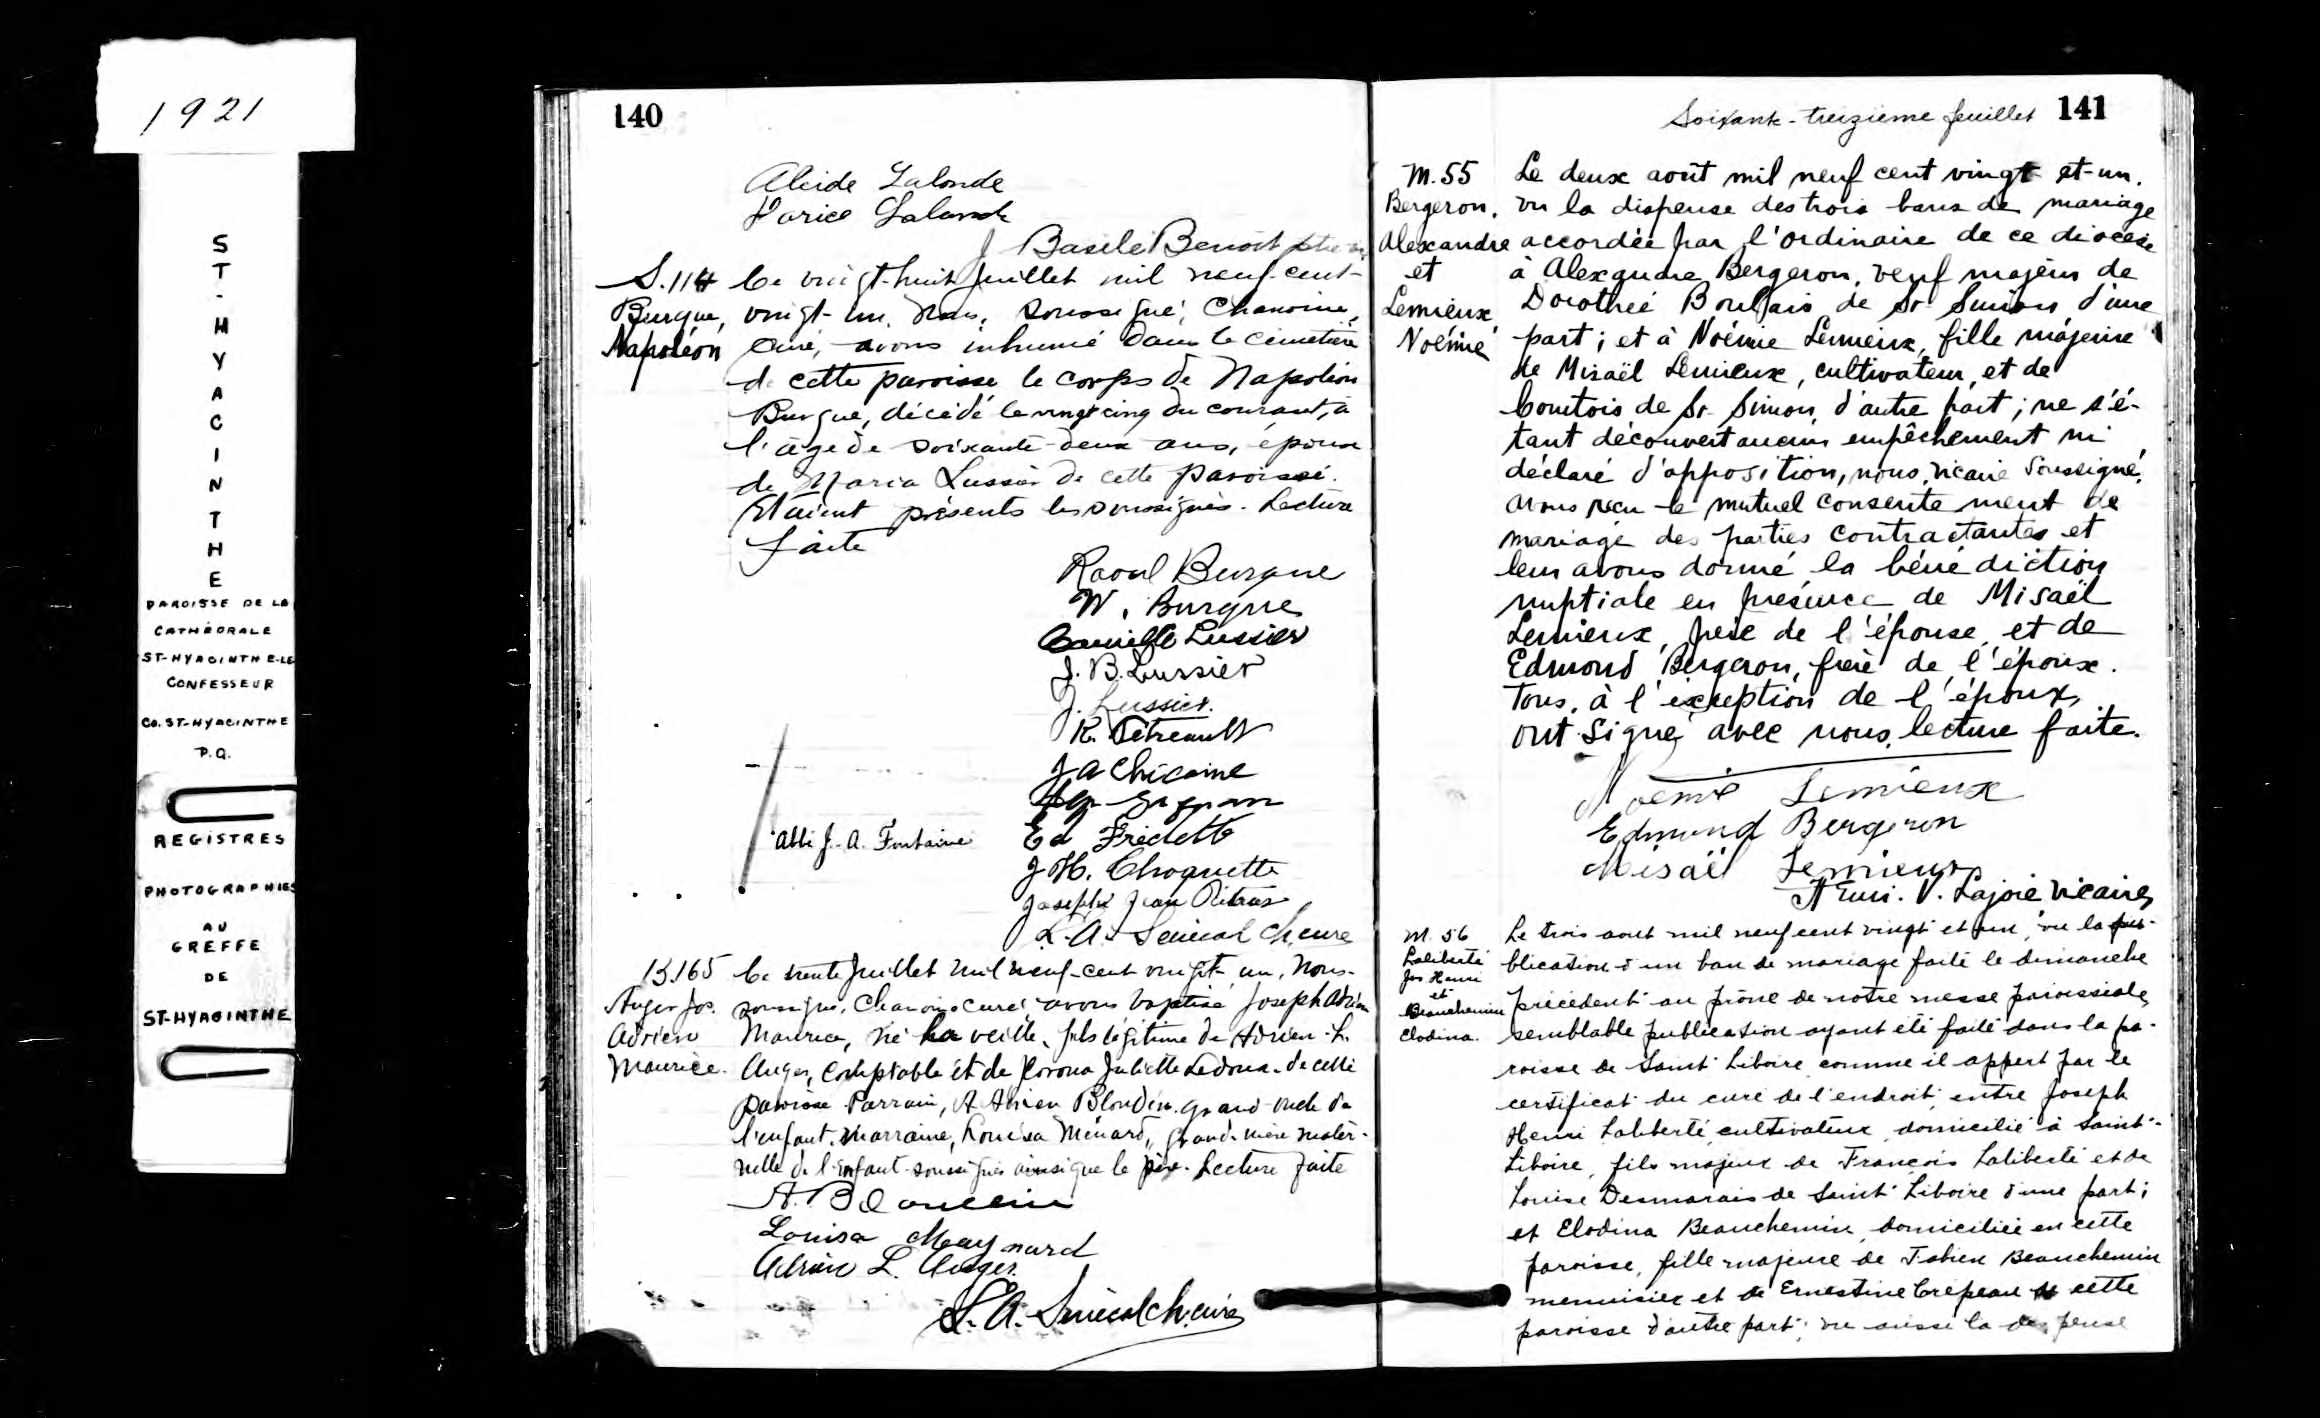 1921
ST-HYACINTHE
PAROISSE DE LA
CATHÉDRALE
ST-HYACINTHE-LE
CONFESSEUR
Co. ST-HYACINTHE
P.Q.
REGISTRES
PHOTOGRAPHIES
AU
GREFFE
DE
ST-HYACINTHE
140
Alcide Lalonde
Lalonde
J Basile Benoit
S.114
Burque,
Napoléon
Le vingt-huit juillet mil neuf-cent-
vingt-un, Nous, soussigné, Chanoine,
Curé, avons inhumé dans le cimetière
de cette paroisse le corps de Napoléon
Burque, décédé le vingt cinq du courant, à
l'âge de soixante-deux ans, époux
de Maria Lussier de cette paroisse.
Etaient présents les soussignés. Lecture
faite
Raoul Burque
W. Burque
Camille Lussier
J. B. Lussier
J. Lussier.
R. Tétreault
J A Chicoine
Ed Fredette
Abbé J. A. Fontaine
J H. Choquette
Joseph Jean
L. A. Senécal Ch. curé
B.165
Auger Jos.
Adrien
Maurice.
Le trente juillet mil neuf-cent vingt-un, Nous-
soussigné, Chanoine curé avons baptisé Joseph Adrien
Maurice, né la veille, fils légitime de Adrien-L.
Auger, comptable et de Corona Juliette Ledoux de cette
paroisse Parrain, A Blondin. grand-oncle de
l'enfant. Marraine, Louisa Ménard, grand-mère mater-
nelle de l'enfant soussignés ainsi que le père. Lecture faite
A. Blondin
Louisa Maynard
Adrien L. Auger.
L. A. Senécal Ch. curé
Soixante-treizième feuillet 141
M.55
Bergeron,
Alexandre
et
Lemieux
Noémie
Le deux août mil neuf cent vingt et-un.
vu la dispense des trois bans de mariage
accordée par l'Ordinaire de ce diocèse
à Alexandre Bergeron, veuf majeur de
Dorothée Boulais de St Simon d'une
part; et à Noémie Lemieux, fille majeure
de Misaël Lemieux, cultivateur, et de
Courtois de St-Simon, d'autre part; ne s'é-
tant découvert aucun empêchement ni
déclaré d'opposition, nous, vicaire soussigné,
avons reçu le mutuel consentement de
mariage des parties contractantes et
leur avons donné la bénédiction
nuptiale en présence de Misaël
Lemieux, père de l'épouse, et de
Edmond Bergeron, frère de l'époux.
Tous, à l'exception de l'époux,
ont signé avec nous, lecture faite.
Noemie Lemieux
Edmond Bergeron
Misaël Lemieux
V. Lajoie vicaire
M. 56
Laliberté
Jos Henri
et
Beauchemin
Elodina.
Le trois aout mil neuf cent vingt et un, vu la pu-
blication d'un ban de mariage faite le dimanche
précédent au prône de notre messe paroissiale,
semblable publication ayant été faite dans la pa-
roisse de Saint Liboire comme il appert par le
certificat du curé de l'endroit, entre Joseph
Henri Laliberté, cultivateur, domicilié à Saint-
Liboire, fils majeur de François Laliberté et de
Louise Desmarais de Saint Liboire d'une part;
et Elodina Beauchemin, domiciliée en cette
paroisse, fille majeure de Fabien Beauchemin
menuisier et de Ernestine Crépeau de cette
paroisse d'autre part; vu aussi la dispense